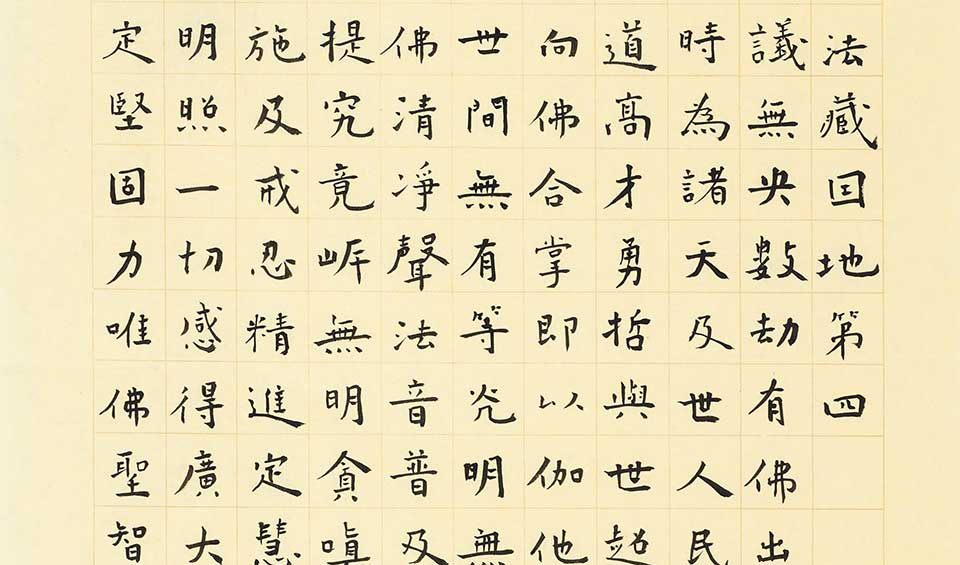 法藏因地第四
議無央數劫有佛出
時為諸天及世人民
道高才勇哲與世超
向佛合掌即以伽他
世間無有等光明無
佛清淨聲法音普及
提究竟岸無明貪嗔
施及戒忍精進定慧
明照一切感得廣大
定堅固力唯佛聖智